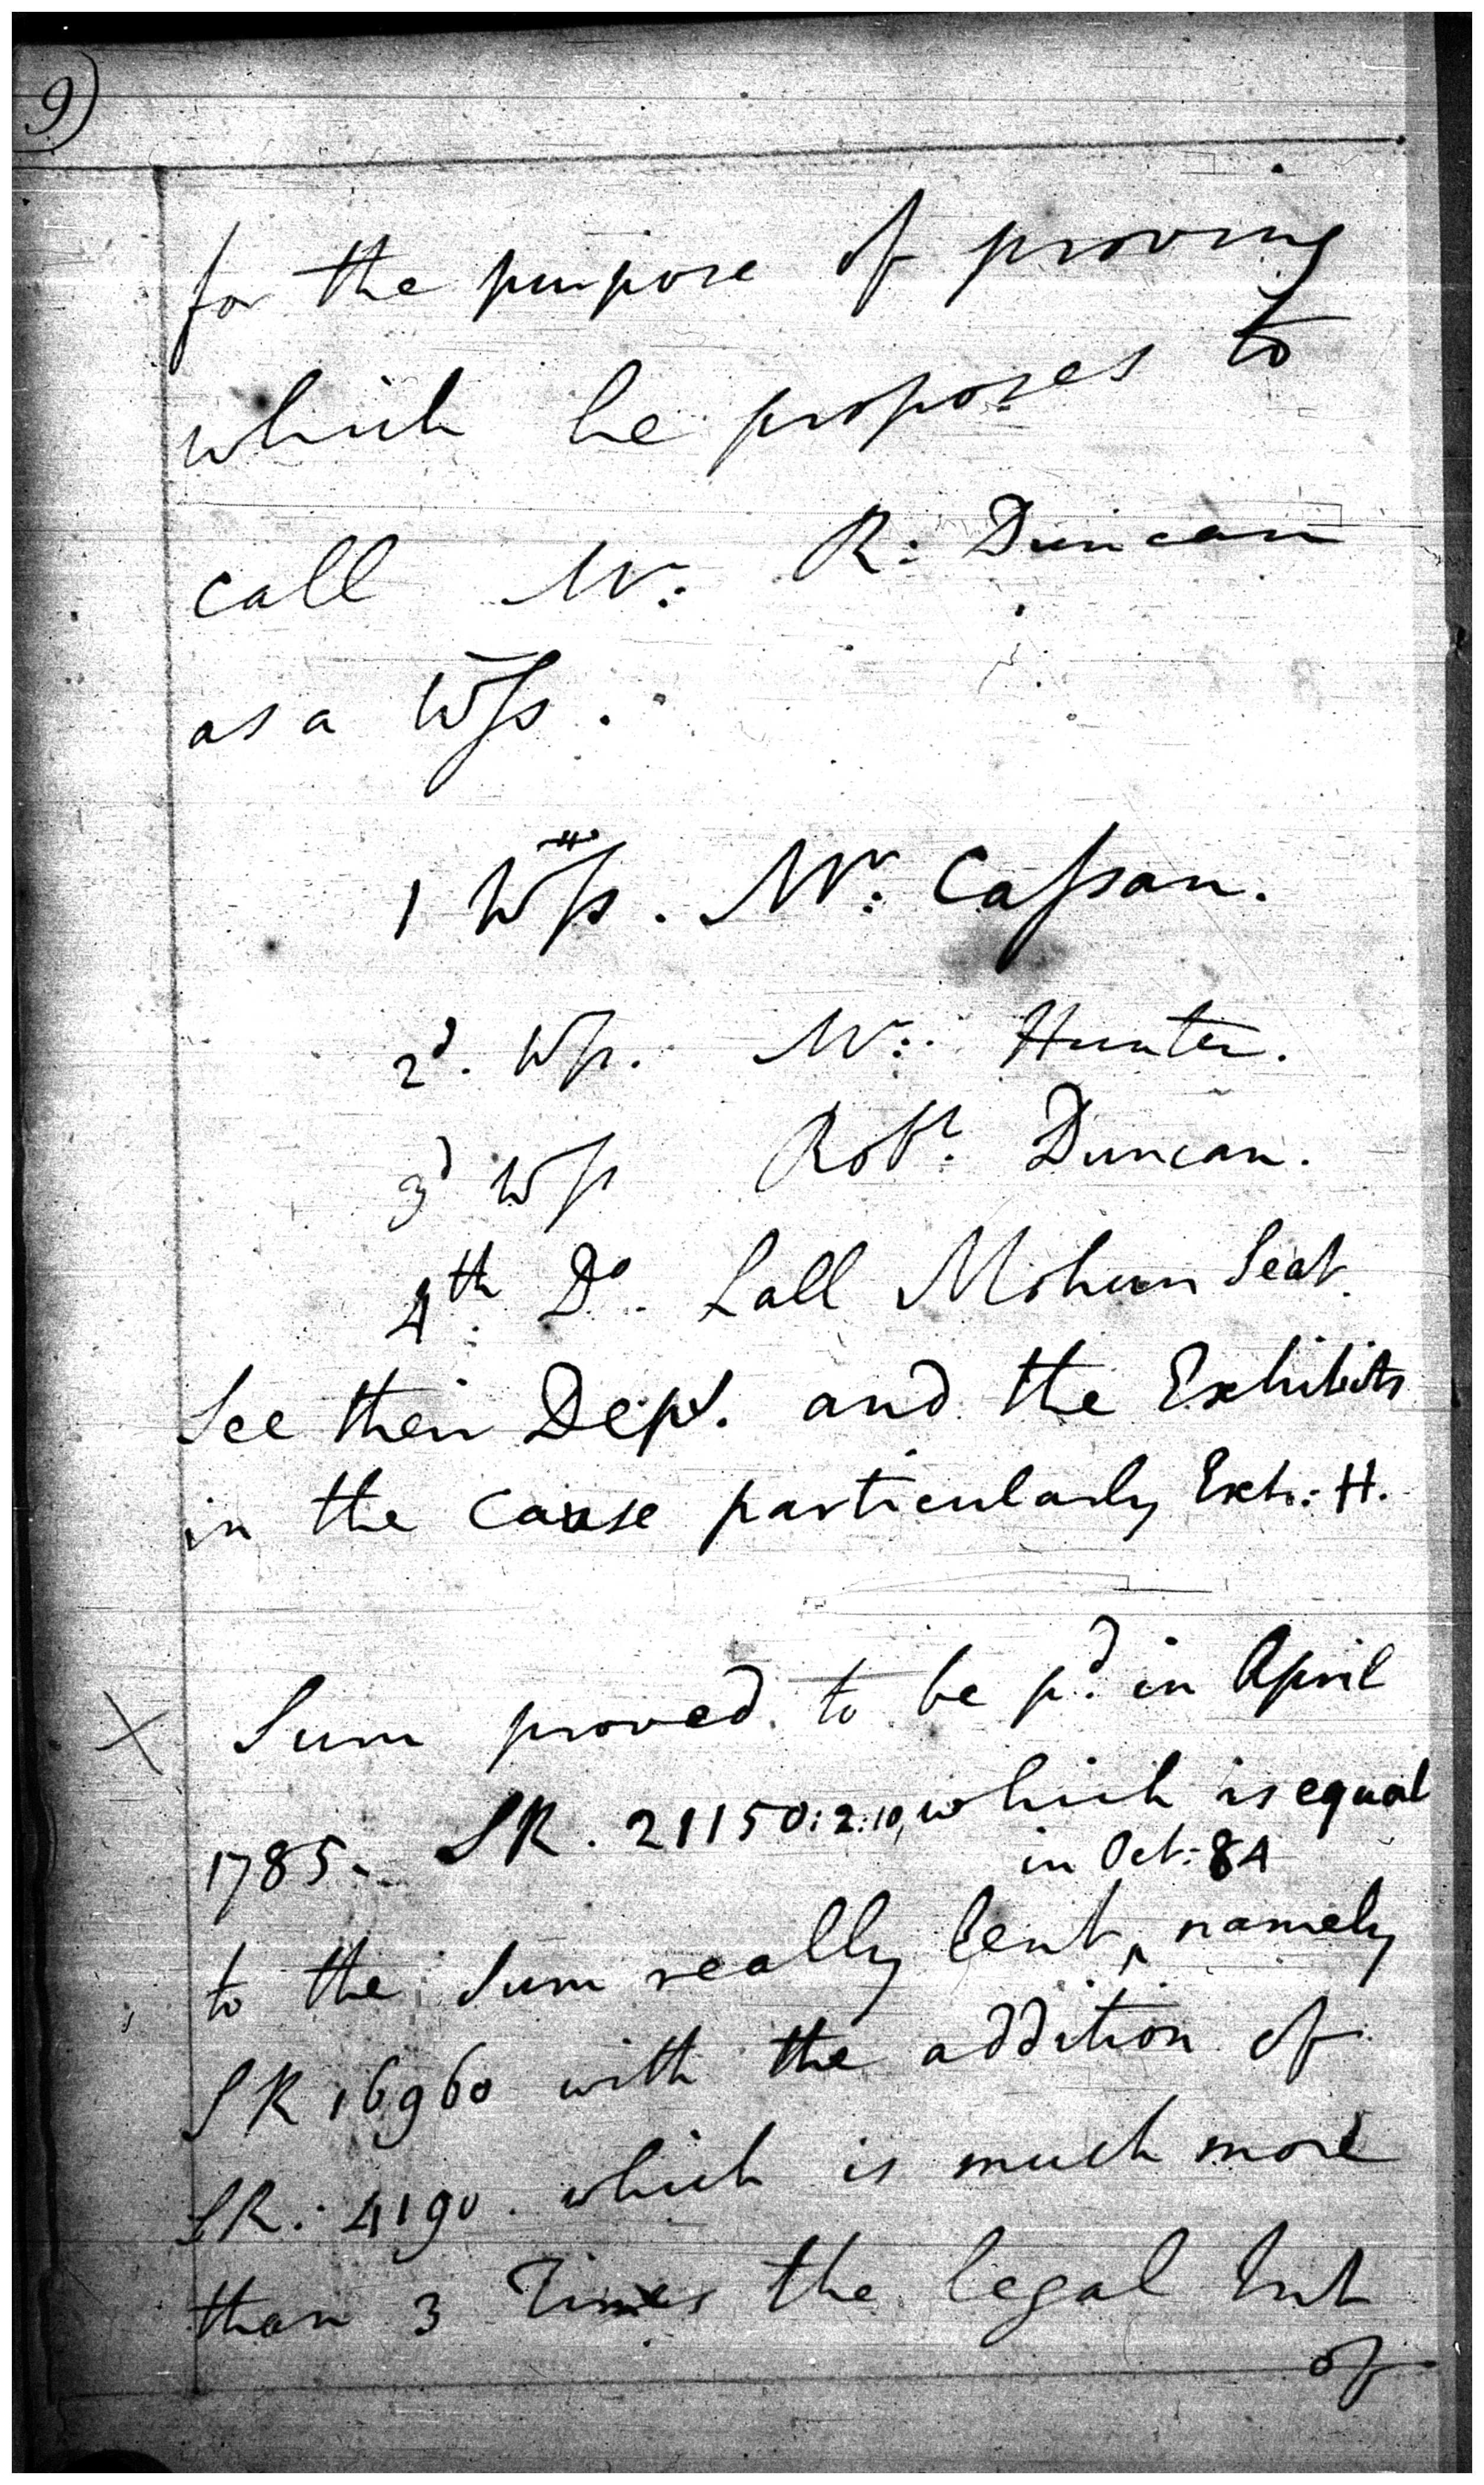 9)
for the purpose of proving
which he proposes to
call Mr: R: Duncan
as a Wss.
1 Wss. Mr: Cassan.
2d. Wss. Mr: Hunter.
3d Wss Robt: Duncan.
4th. Do. Lall Mohun Seat.
See their Dept. and the Exhibits
in the Cause particularly Exh: H.
X Sum proved to be pd. in April
1785. SR. 21150:2:10, which is equal
in Oct: 84
to the Sum really lent ‸ namely
SR 16960 with the addition of
SR: 4190. which is much more
than 3 Times the legal Int
of